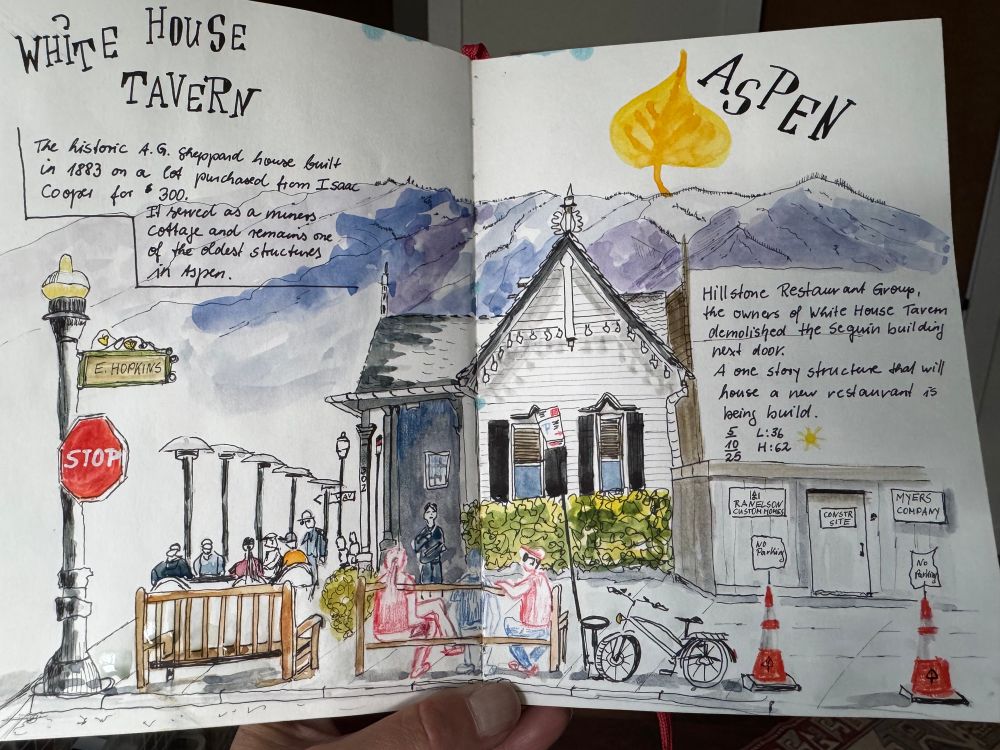 WHITE HOUSE
TAVERN
The historic A.G. Sheppard house built
in 1883 on a lot purchased from Isaac
Cooper for $ 300.
It served as a miners
cottage and remains one
of the oldest structures
in Aspen.
E. HOPKINS
STOP
ASPEN
Hillstone Restaurant Group,
the owners of White House Tavern
demolished the Seguin building
next door.
A one story structure that will
house a new restaurant is
being build.
5
10
25
L:36
H:62
RANELSON
CUSTOM HOMES
NO
Parking
CONSTR
SITE
MYERS
COMPANY
No
Parking